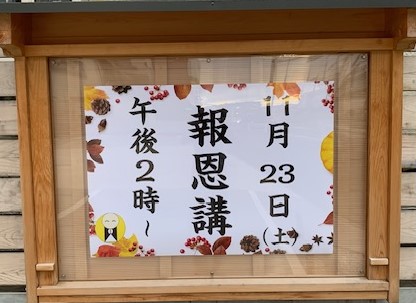 11月23日(土)
報恩講
午後2時~